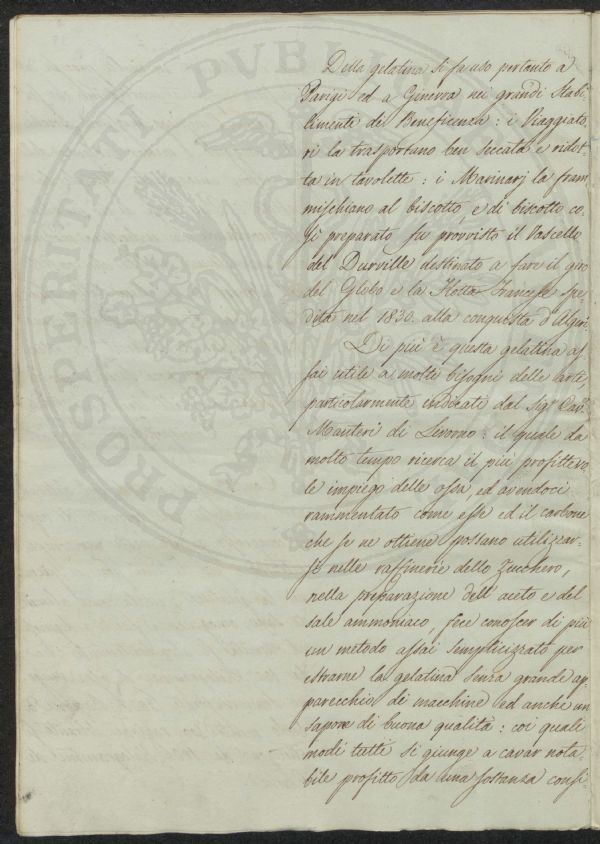 Della gelatina si fa uso pertanto a
Parigi ed a Ginevra nei grandi Stabi-
limenti di Beneficenza: i Viaggiato
ri la trasportano ben seccata e ridot-
ta in tavolette: i Marinarj la fram
mischiano al biscotto, e di biscotto co
sì preparato fu provvisto il Vascello
del Durville destinato a fare il giro
del Globo e la Flotta Francese spe
dita nel 1830. alla conquista d'Algeri.
Di più è questa gelatina as
sai utile a molti bisogni delle arti,
particolarmente indicati dal Sigr. Cavr.
Manteri di Livorno: il quale da
molto tempo ricerca il più profittevo
le impiego delle ossa, ed avendoci
rammentato come esse ed il carbone
che se ne ottiene possano utilizzar-
si nelle raffinerie dello Zucchero,
nella preparazione dell'aceto e del
sale ammoniaco, fece conoscer di più
un metodo assai semplicizzato per
estrarne la gelatina senza grande ap
parecchio di macchine ed anche un
sapone di buona qualità: coi quali
modi tutti si giunge a cavar nota
bile profitto da una sostanza consi-
PROSPERITATI PVBLI